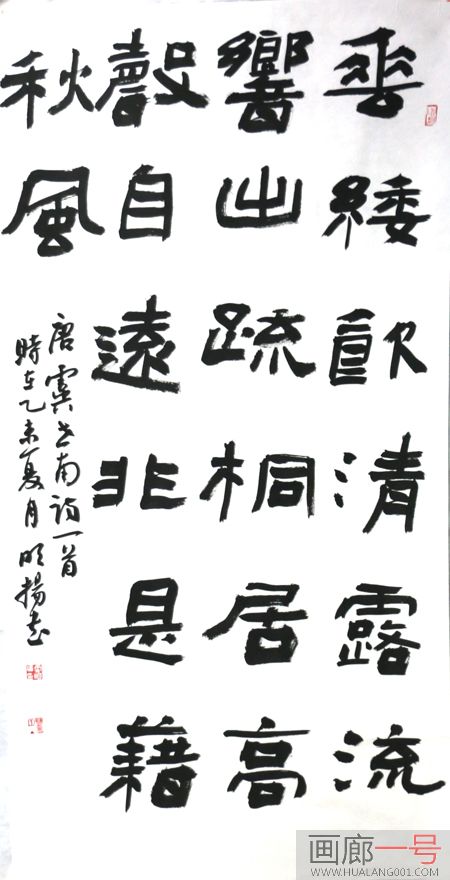 垂緌飲清露流
響出疏桐居高
聲自遠非是藉
秋風
唐虞世南詩一首
時在乙未夏月明揚書
画廊一号
WWW.HUALANG001.COM